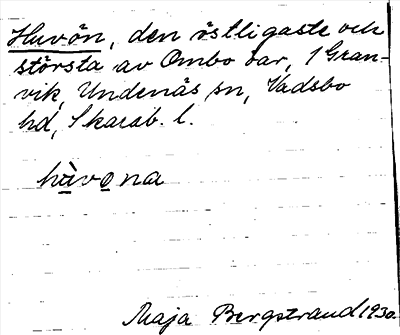 Huvön, den östligaste och
största av Ombo öar, 1 Gran-
vik, Undenäs sn, Vadsbo
hd, Skarab. l.
hùvona
Maja Bergstrand 1930.